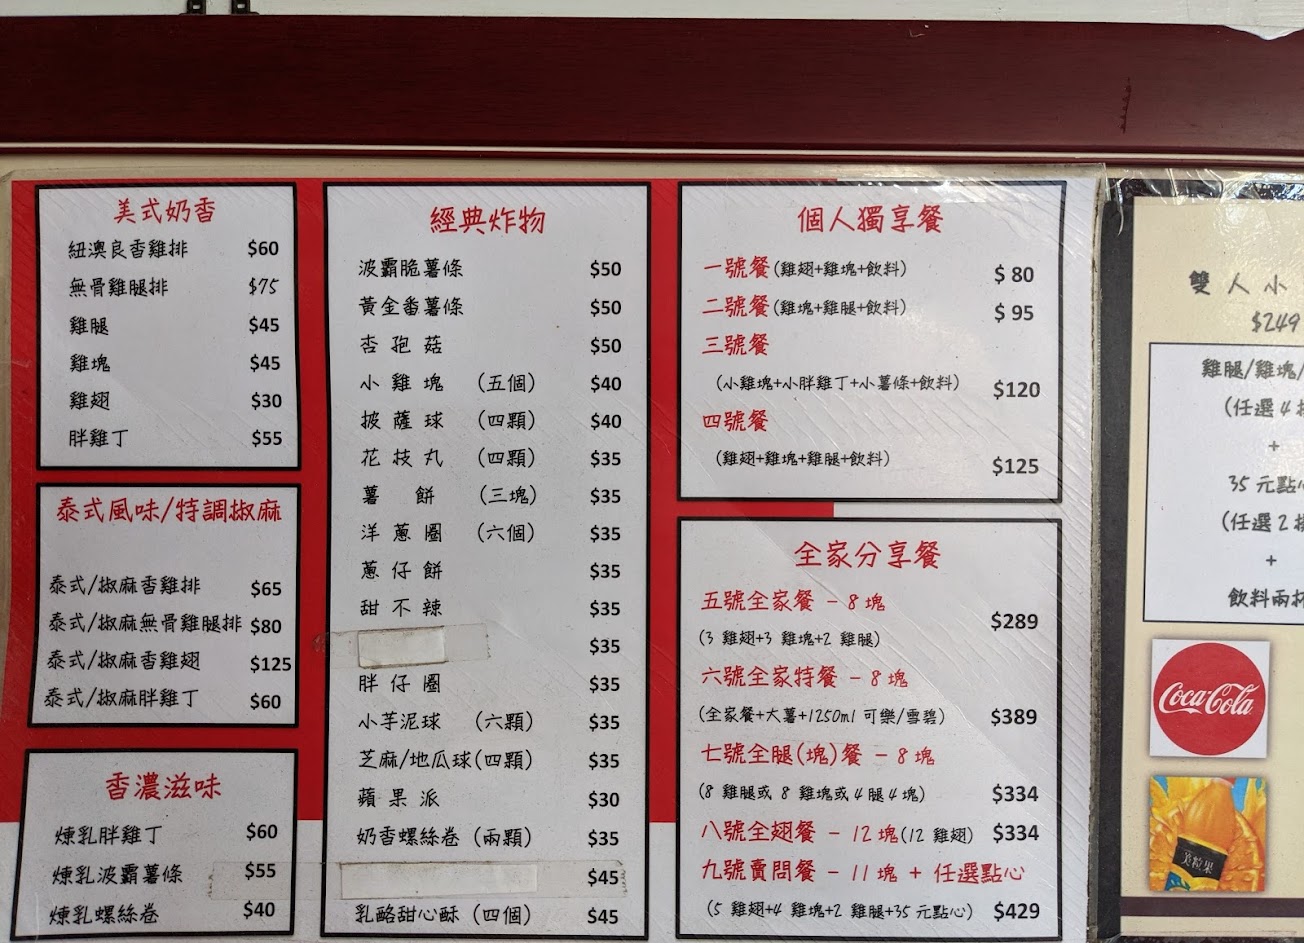 美式奶香
紐澳良香雞排 $60
無骨雞腿排 $75
雞腿 $45
雞塊 $45
雞翅 $30
胖雞丁 $55
泰式風味/特調椒麻
泰式/椒麻香雞排 $65
泰式/椒麻無骨雞腿排 $80
泰式/椒麻香雞翅 $125
泰式/椒麻胖雞丁 $60
香濃滋味
煉乳胖雞丁 $60
煉乳波霸薯條 $55
煉乳螺絲卷 $40
經典炸物
波霸脆薯條 $50
黃金番薯條 $50
杏孢菇 $50
小雞塊 (五個) $40
披薩球 (四顆) $40
花枝丸 (四顆) $35
薯餅 (三塊) $35
洋蔥圈 (六個) $35
蔥仔餅 $35
甜不辣 $35
$35
胖仔圈 $35
小芋泥球 (六顆) $35
芝麻/地瓜球(四顆) $35
蘋果派 $30
奶香螺絲卷 (兩顆) $35
$45
乳酪甜心酥 (四個) $45
個人獨享餐
一號餐(雞翅+雞塊+飲料) $ 80
二號餐(雞塊+雞腿+飲料) $ 95
三號餐
(小雞塊+小胖雞丁+小薯條+飲料) $120
四號餐
(雞翅+雞塊+雞腿+飲料) $125
全家分享餐
五號全家餐 - 8 塊
(3 雞翅+3 雞塊+2 雞腿) $289
六號全家特餐 - 8 塊
(全家餐+大薯+1250ml 可樂/雪碧) $389
七號全腿(塊)餐 - 8 塊
(8 雞腿或 8 雞塊或 4 腿 4 塊) $334
八號全翅餐 - 12 塊(12 雞翅) $334
九號賣問餐 - 11 塊 + 任選點心
(5 雞翅+4 雞塊+2 雞腿+35 元點心) $429
雙人小
$249
雞腿/雞塊/
(任選 4
+
35 元點心
(任選 2
+
飲料兩杯
Coca-Cola
美粒果